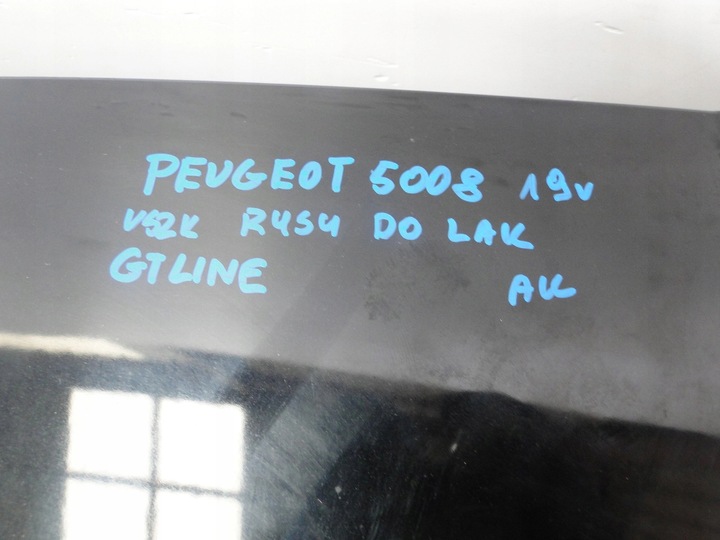 PEUGEOT 5008 19v
USZK RYSY DO LAK
GTLINE AK